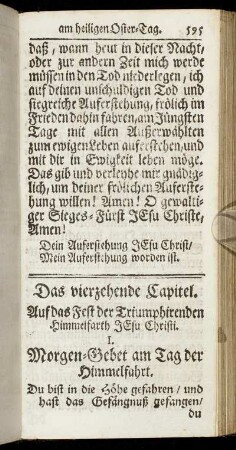 am heiligen Oster-Tag. 595
daß, wann heut in dieser Nacht,
oder zur andern Zeit mich werde
müssen in den Tod niederlegen, ich
auf deinen unschuldigen Tod und
siegreiche Auferstehung, frölich im
Frieden dahin fahren, am Jüngsten
Tage mit allen Außerwählten
zum ewigen Leben auferstehen, und
mit dir in Ewigkeit leben möge.
Das gib und verleyhe mir gnädig-
lich, um deiner frölichen Auferste-
hung willen! Amen! O gewalti-
ger Sieges-Fürst JEsu Christe,
Amen!
Dein Auferstehung JEsu Christ/
Mein Auferstehung worden ist.
Das vierzehende Capitel.
Auf das Fest der Triumphirenden
Himmelfarth JEsu Christi.
I.
Morgen-Gebet am Tag der
Himmelfahrt.
Du bist in die Höhe gefahren / und
hast das Gefängnuß gefangen/
du